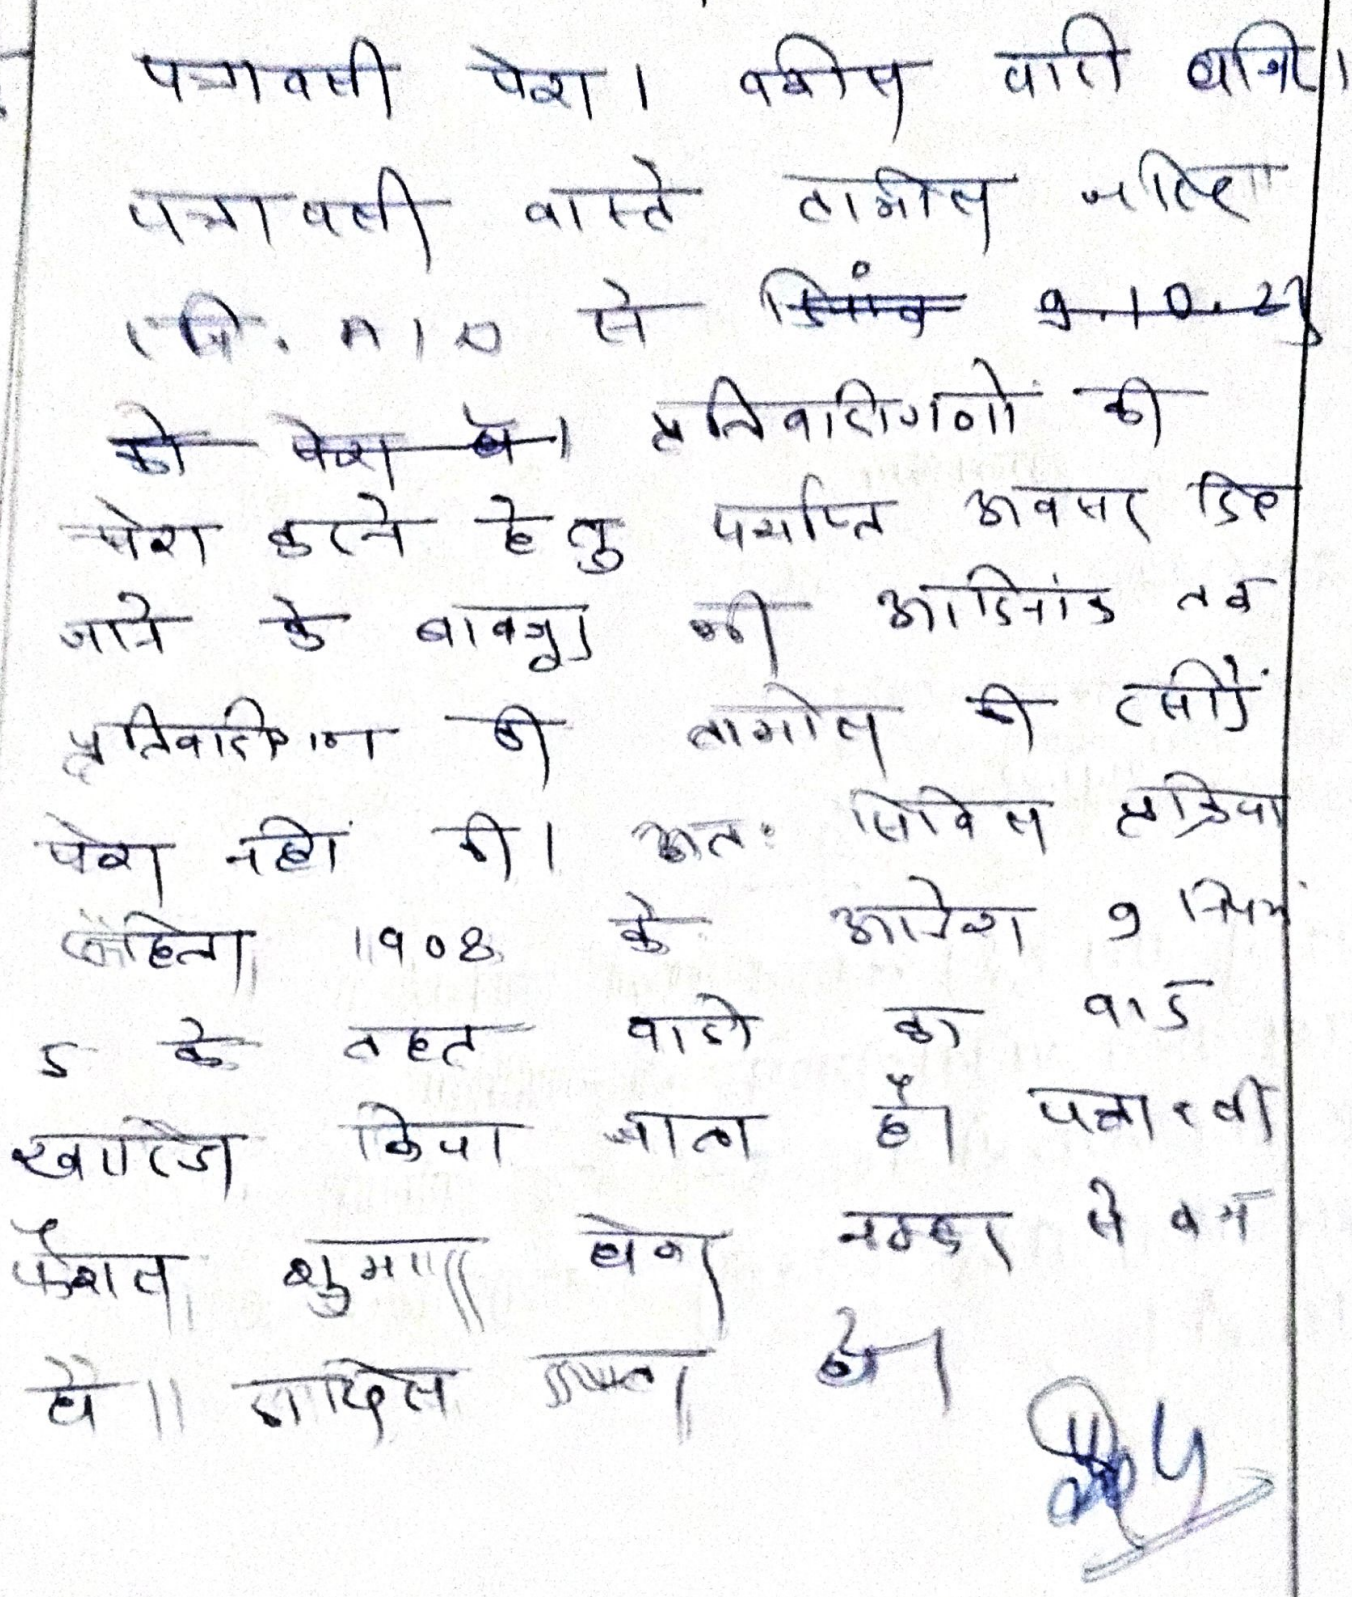 पत्रावली पेश। वकील वादी हाजिर।
पत्रावली वास्ते तामील जरिए
रजि. A/D से दिनांक 9.10.23
को पेश हो। प्रतिवादीगणों की
पेश करने हेतु पर्याप्त अवसर दिए
जाने के बावजूद भी आदिनांक तक
प्रतिवादीगण की तामील की रसीदें
पेश नहीं की। अतः सिविल प्रक्रिया
संहिता 1908 के आदेश 9 नियम
5 के तहत वादी का वाद
खारिज किया जाता है। पत्रावली
फैशल शुमार होकर नम्बर से कम
हो। दाखिल दफ्तर हो।